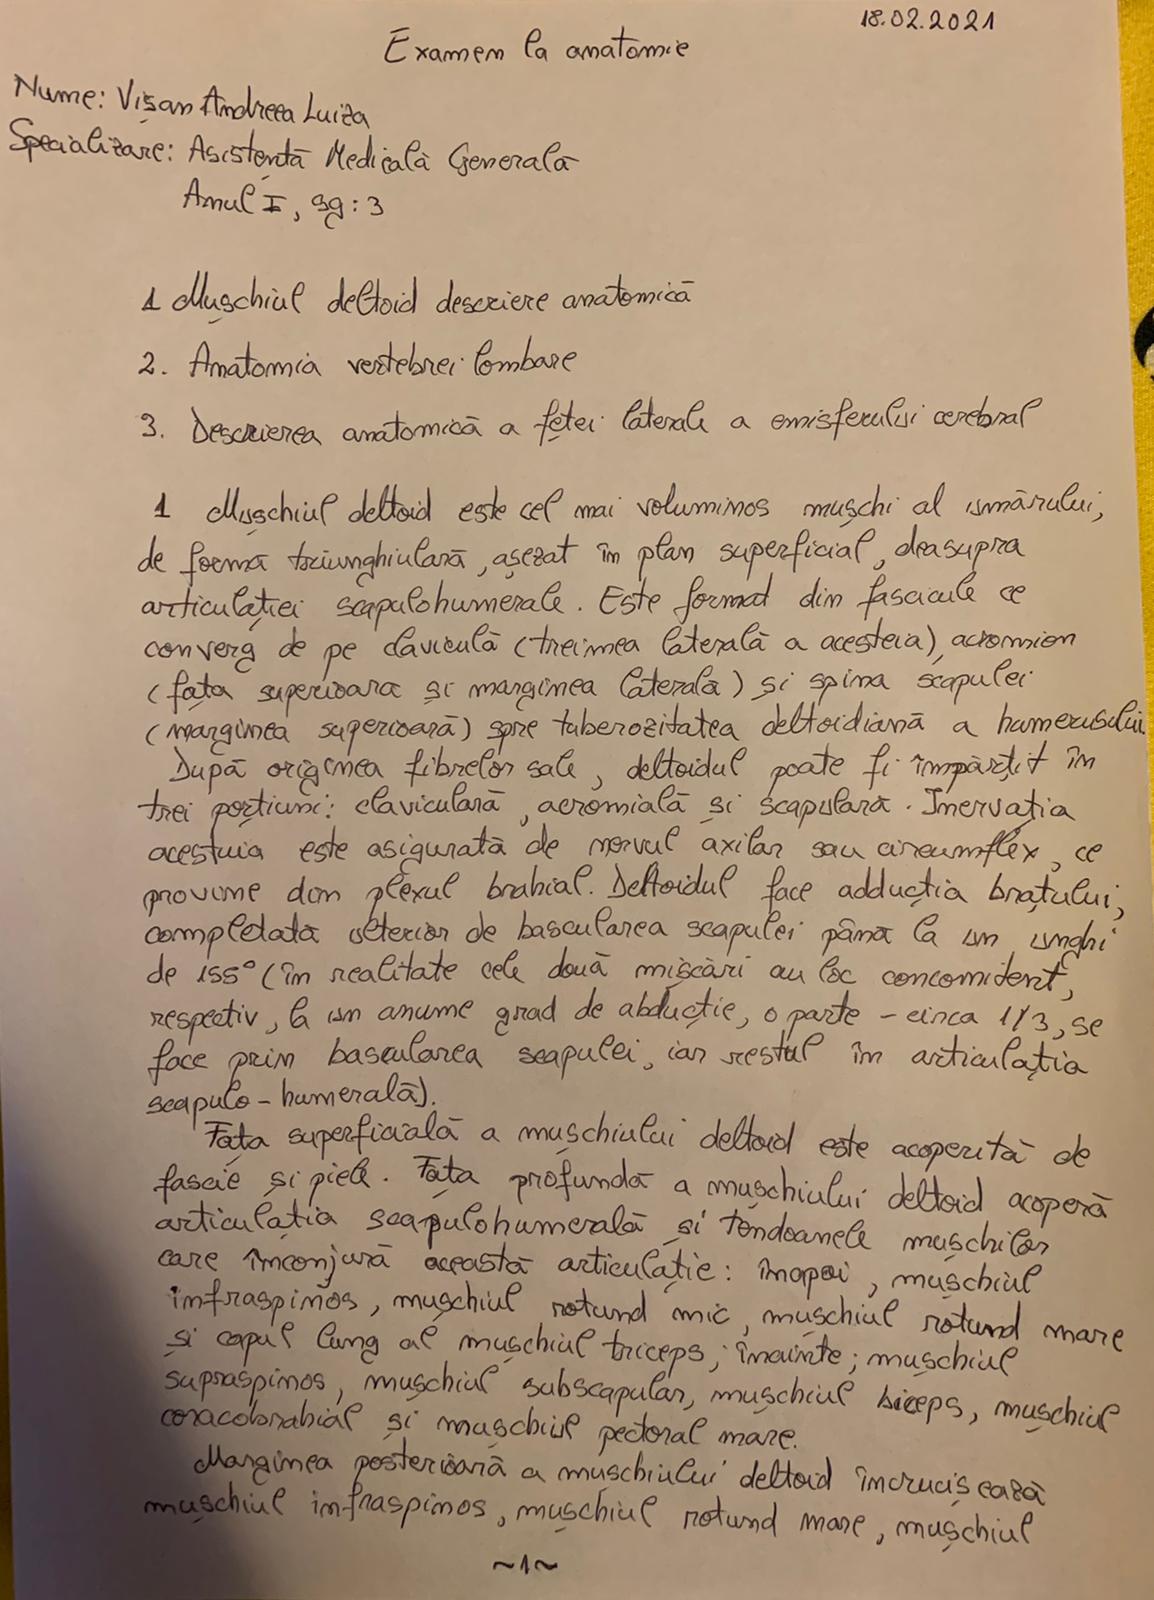 18.02.2021
Examen la anatomie
Nume: Vișan Andreea Luiza
Specializare: Asistentă Medicală Generală
Anul I, sg: 3
1 Mușchiul deltoid descriere anatomică
2. Anatomia vertebrei lombare
3. Descrierea anatomică a feței laterale a emisferului cerebral
1 Mușchiul deltoid este cel mai voluminos mușchi al umărului,
de formă triunghiulară, așezat în plan superficial, deasupra
articulației scapulohumerale. Este format din fascicule ce
converg de pe claviculă (treimea laterală a acesteia), acromion
(fața superioara și marginea laterală) și spina scapulei
(marginea superioară) spre tuberozitatea deltoidiană a humerusului
După originea fibrelor sale, deltoidul poate fi împărțit în
trei porțiuni: claviculară, acromială și scapulară. Inervația
acestuia este asigurată de nervul axilar sau circumflex, ce
provine din plexul brahial. Deltoidul face adducția brațului,
completată ulterior de bascularea scapulei până la un unghi
de 155° (în realitate cele două mișcări au loc concomitent,
respectiv, la un anume grad de abducție, o parte - circa 1/3, se
face prin bascularea scapulei, iar restul în articulația
scapulo-humerală).
Fața superficială a mușchiului deltoid este acoperită de
fascie și piele. Fața profundă a mușchiului deltoid acoperă
articulația scapulohumerală și tendoanele mușchilor
care înconjură această articulație: înapoi, mușchiul
infraspinos, mușchiul rotund mic, mușchiul rotund mare
și capul lung al mușchiul triceps; înainte; mușchiul
supraspinos, mușchiul subscapular, mușchiul biceps, mușchiul
coracobrahial și mușchiul pectoral mare.
Marginea posterioară a mușchiului deltoid încrucișează
mușchiul infraspinos, mușchiul rotund mare, mușchiul
~1~